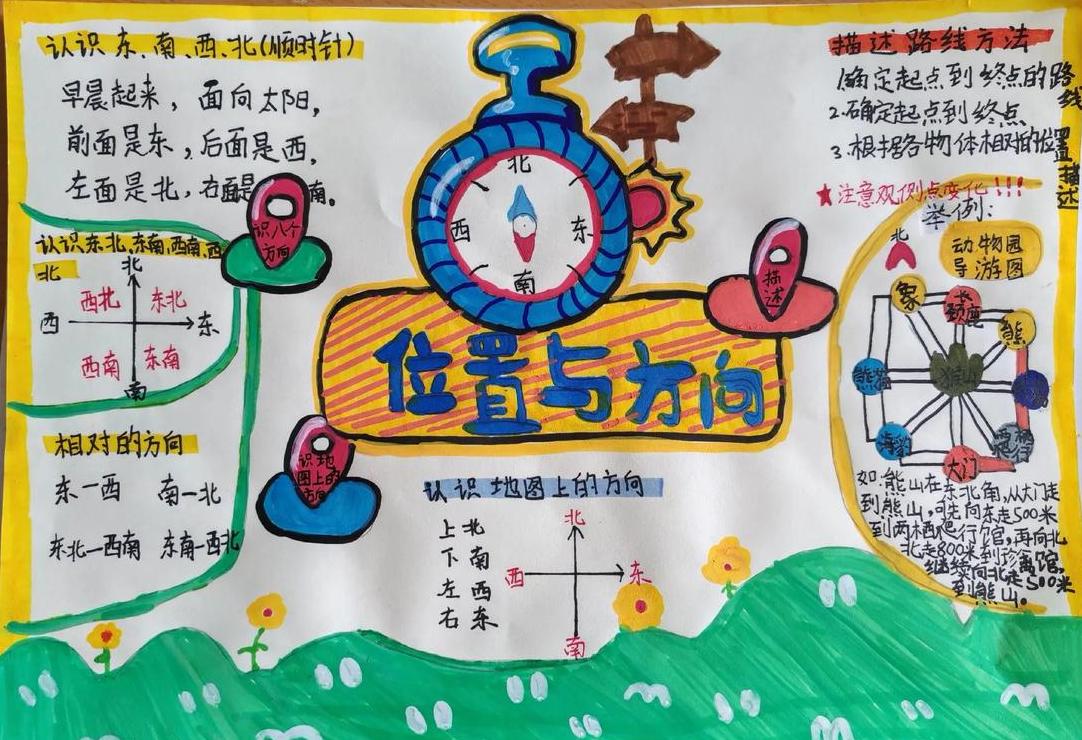 认识东、南、西、北(顺时针)
早晨起来，面向太阳，
前面是东，后面是西，
左面是北，右面是南。
识八个
方向
认识东北、东南、西南、西
北
北
西北 东北
西 东
西南 东南
南
相对的方向
东一西 南一北
东北一西南 东南一西北
北
西 东
南
位置与方向
识地
图上的
方向
认识地图上的方向
上北
下南
左西
右东
北
西 东
南
描述
描述路线方法
1.确定起点到终点的路
线
2.确定起点到终点
3.根据各物体相对的位置
描
述
★注意观侧点变化!!!
举例：
北
动物园
导游图
象
长颈鹿
熊
熊猫
猴山
海豹
大门
两栖
爬行
如：熊山在东北角，从大门走
到熊山，可先向东走500米
到两栖爬行馆，再向北
走800米到珍禽馆，
继续向北走500米
到熊山。